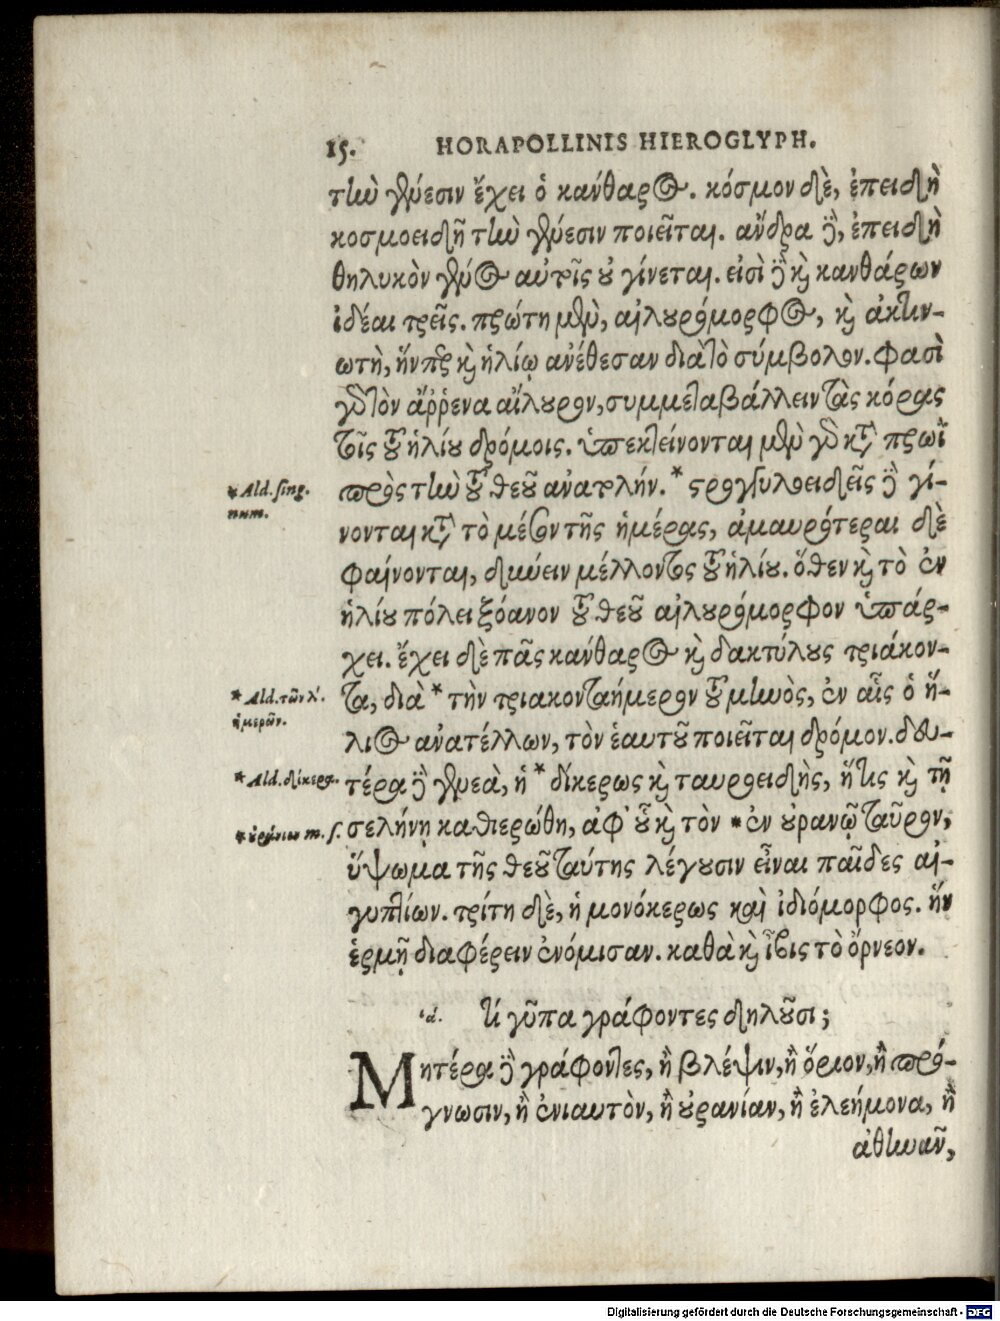 15. HORAPOLLINIS HIEROGLYPH.
τὴν γένεσιν ἔχει ὁ κάνθαρος. κόσμον δὲ, ἐπειδὴ
κοσμοειδῆ τὴν γένεσιν ποιεῖται. ἄνδρα δὲ, ἐπειδὴ
θηλυκὸν γένος αὐτοῖς οὐ γίνεται. εἰσὶ δὲ καὶ κανθάρων
ἰδέαι τρεῖς. πρώτη μὲν, αἰλουρόμορφος, καὶ ἀκτιν-
ωτὴ, ἥνπερ καὶ ἡλίῳ ἀνέθεσαν διὰ τὸ σύμβολον. φασὶ
γὰρ τὸν ἄῤῥενα αἴλουρον, συμμεταβάλλειν τὰς κόρας
τοῖς τοῦ ἡλίου δρόμοις. ὑπεκτείνονται μὲν γὰρ κατὰ πρωῒ
πρὸς τὴν τοῦ θεοῦ ἀνατολήν. * στρογγυλοειδεῖς δὲ γί-
* Ald. sing.
num.
νονται κατὰ τὸ μέσον τῆς ἡμέρας, ἀμαυρότεραι δὲ
φαίνονται, δύνειν μέλλοντος τοῦ ἡλίου. ὅθεν καὶ τὸ ἐν
ἡλίου πόλει ξόανον τοῦ θεοῦ αἰλουρόμορφον ὑπάρ-
χει. ἔχει δὲ πᾶς κάνθαρος καὶ δακτύλους τριάκον-
τα, διὰ * τὴν τριακονταήμερον τοῦ μηνὸς, ἐν αἷς ὁ ἥ-
* Ald. τῶν λ'.
ἡμερῶν.
λιος ἀνατέλλων, τὸν ἑαυτοῦ ποιεῖται δρόμον. δευ-
τέρα δὲ γενεὰ, ἡ * δίκερως καὶ ταυροειδὴς, ἥτις καὶ τῇ
* Ald. δίκερα.
σελήνῃ καθιερώθη, ἀφ' οὗ καὶ τὸν * ἐν οὐρανῷ ταῦρον,
* οὐράνιον m. s.
ὕψωμα τῆς θεοῦ ταύτης λέγουσιν εἶναι παῖδες αἰ-
γυπτίων. τρίτη δὲ, ἡ μονόκερως καὶ ἰδιόμορφος. ἣν
ἑρμῇ διαφέρειν ἐνόμισαν. καθὰ καὶ ἶβις τὸ ὄρνεον.
ια. τί γῦπα γράφοντες δηλοῦσι;
Μητέρα δὲ γράφοντες, ἢ βλέψιν, ἢ ὅριον, ἢ πρό-
γνωσιν, ἢ ἐνιαυτὸν, ἢ οὐρανίαν, ἢ ἐλεήμονα, ἢ
ἀθηνᾶν,
Digitalisierung gefördert durch die Deutsche Forschungsgemeinschaft - DFG